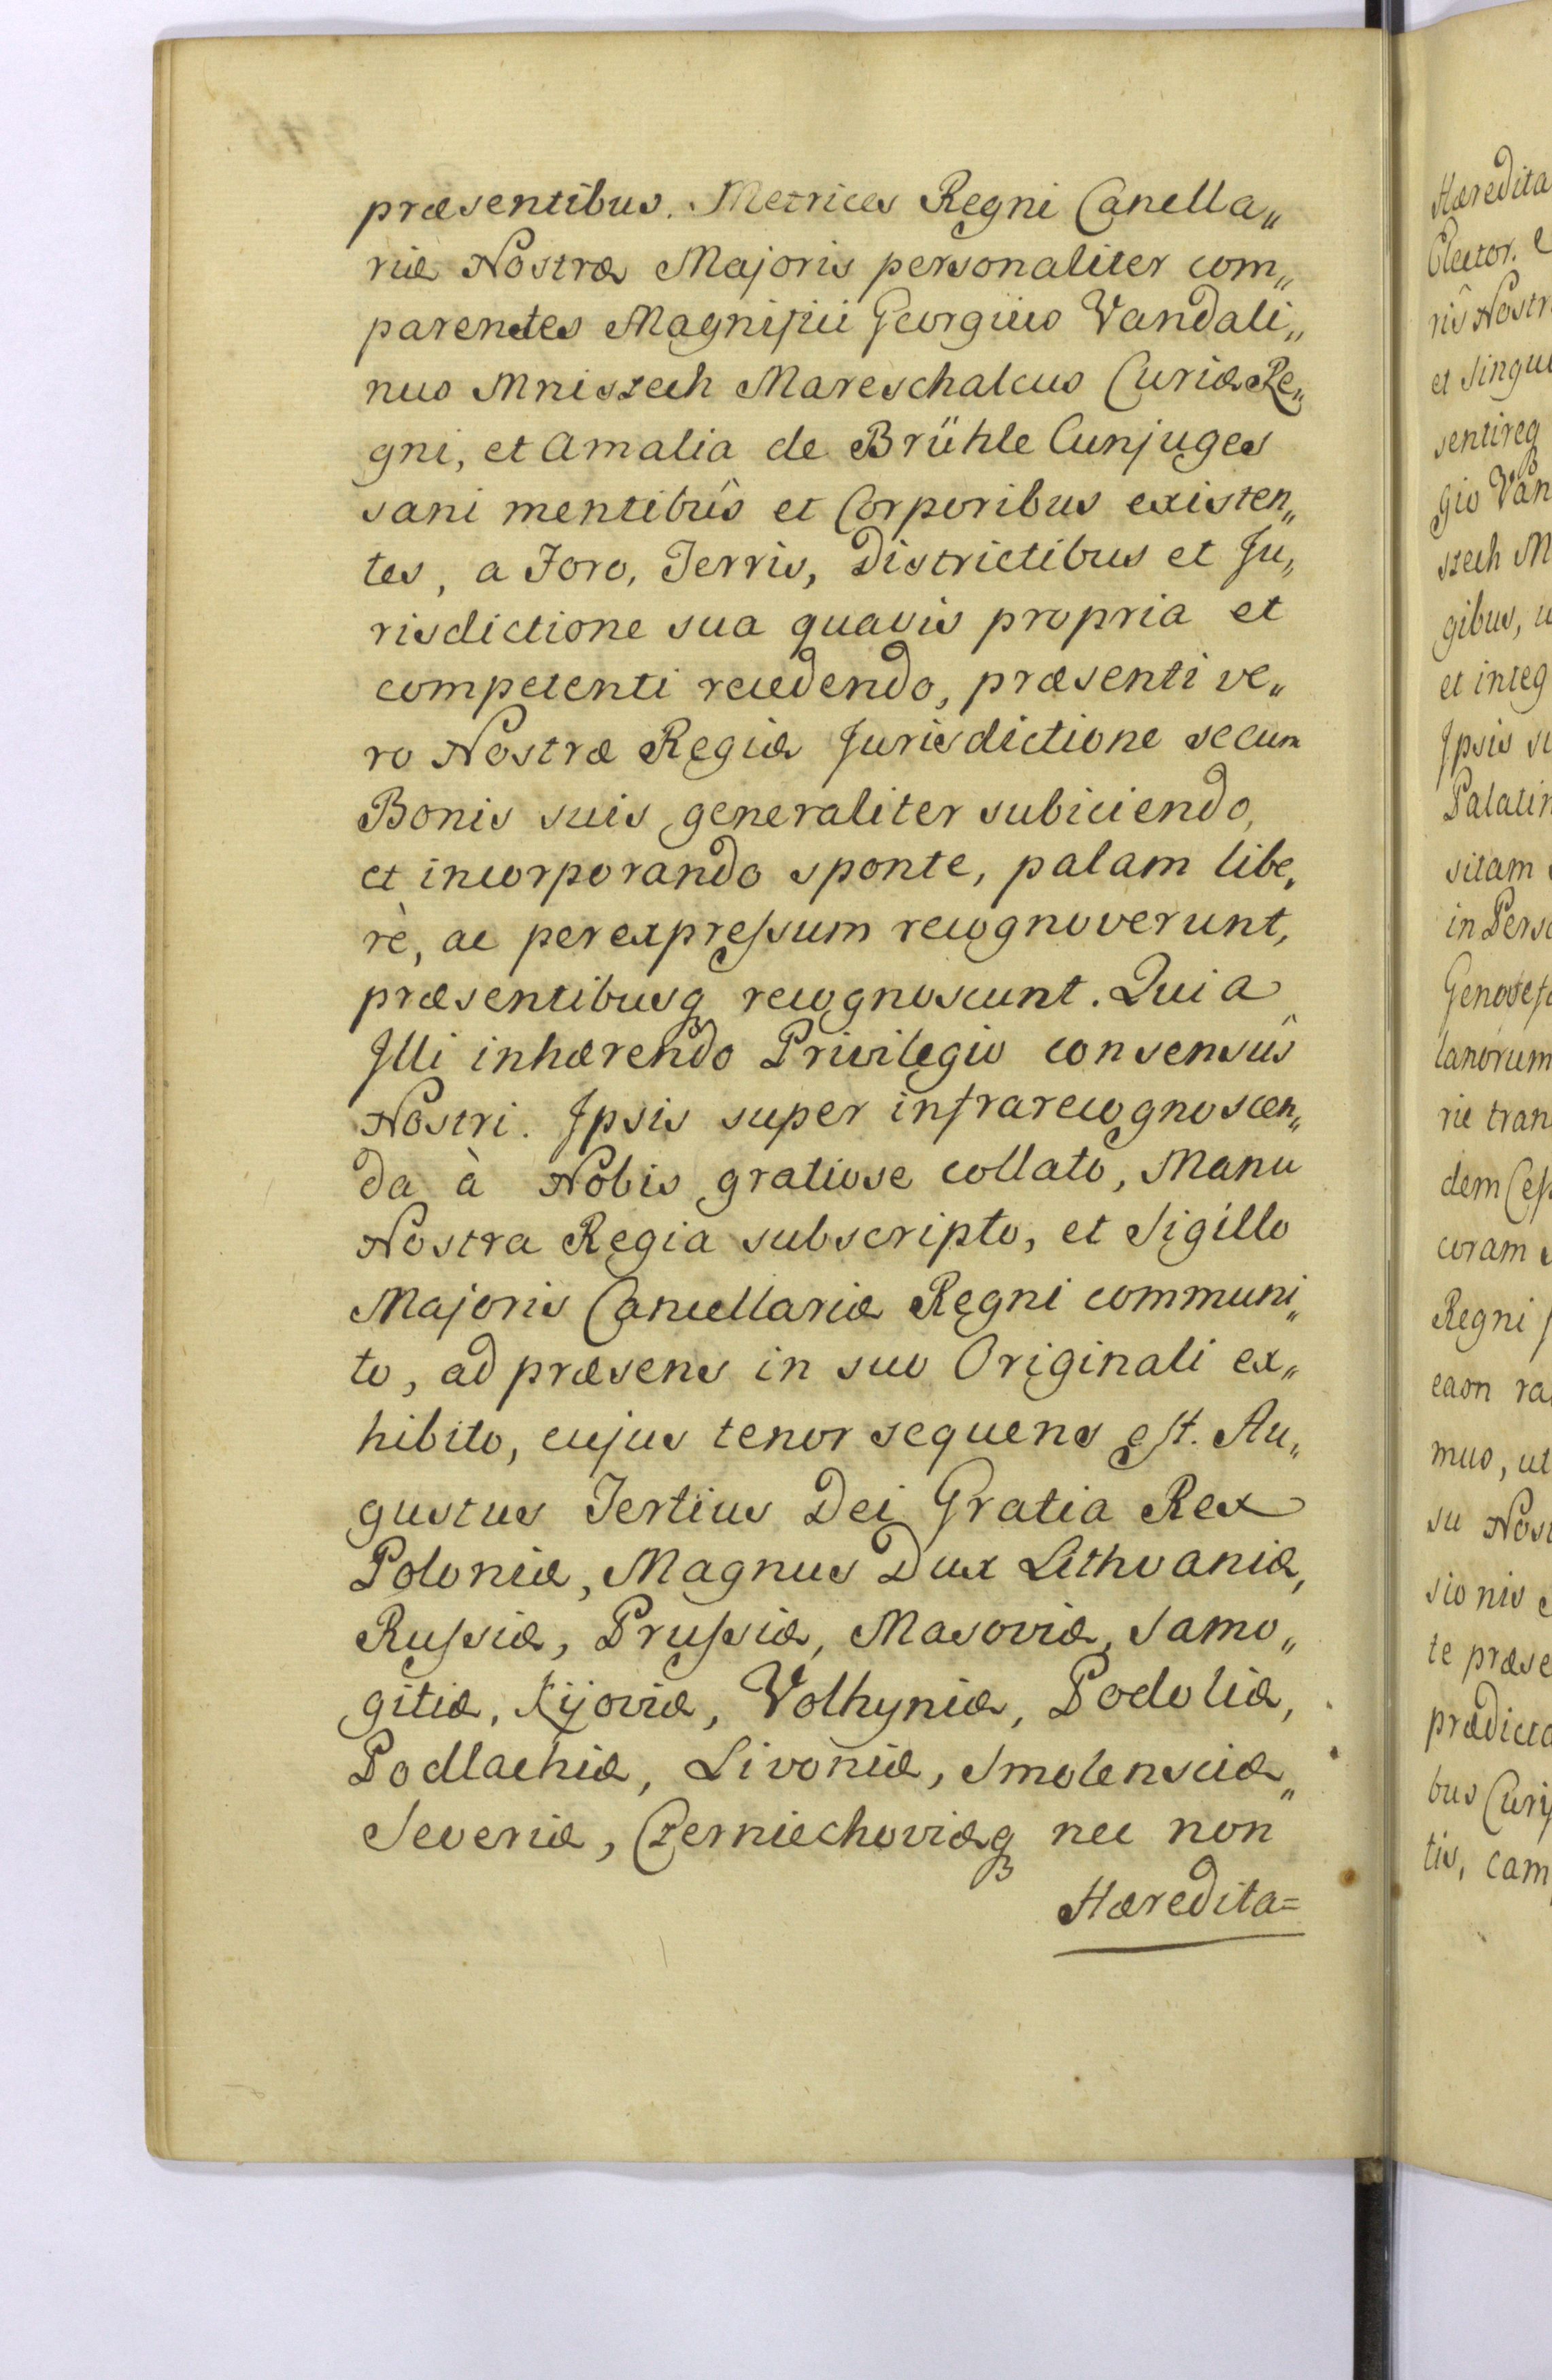 præsentibus. Metrices Regni Canella„
riæ Nostræ Majoris personaliter com„
parentes Magnifici Georgius Vandali„
nus Mniszech Mareschalcus Curiæ Re„
gni, et Amalia de Brühle Cunjuges
sani mentibûs et Corporibus existen„
tes, a Foro, Terris, Districtibus et Ju„
risdictione sua quavis propria et
competenti recedendo, præsenti ve„
ro Nostræ Regiæ Jurisdictione secum
Bonis suis generaliter subiciendo,
et incorporando sponte, palam libe„
rè, ac per expreſsum recognoverunt,
præsentibusq₃ recognoscunt. Quia
Illi inhærendo Privilegio consensûs
Nostri. Ipsis super infrarecognoscen„
da à Nobis gratiose collato, Manu
Nostra Regia subscripto, et Sigillo
Majoris Cancellariæ Regni communi„
to, ad præsens in suo Originali ex„
hibito, cujus tenor sequens eſt. Au„
gustus Tertius Dei Gratia Rex
Poloniæ, Magnus Dux Lithvaniæ,
Ruſsiæ, Pruſsiæ, Masoviæ, Samo„
gitiæ, Kijoviæ, Volhyniæ, Podoliæ,
Podlachiæ, Livoniæ, Smolensciæ„
Severiæ, Czerniechoviæq₃ nec non
Hæredita=
Hæredita
Elector. e
riô Nostr
et Singul
sentireq₃
gio Van
szech M
gibus, u
et integ
Ipsis su
Palatin
sitam
in Perso
Genovef
lanorum
rie tran
dem Ceſ
coram
Regni
eaon ra
mus, ut
su Nost
sionis
te præse
prædicta
bus Curi
tis, cam